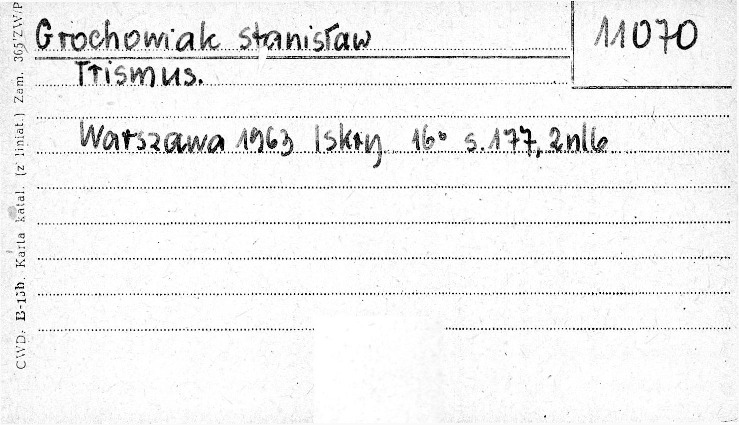 Grochowiak Stanisław
11070
Trismus.
Warszawa 1963 Iskry 16° s.177, 2nlb
CWD. B-13b. Karta katal. (z liniat.) Zam. 365/ZW/P